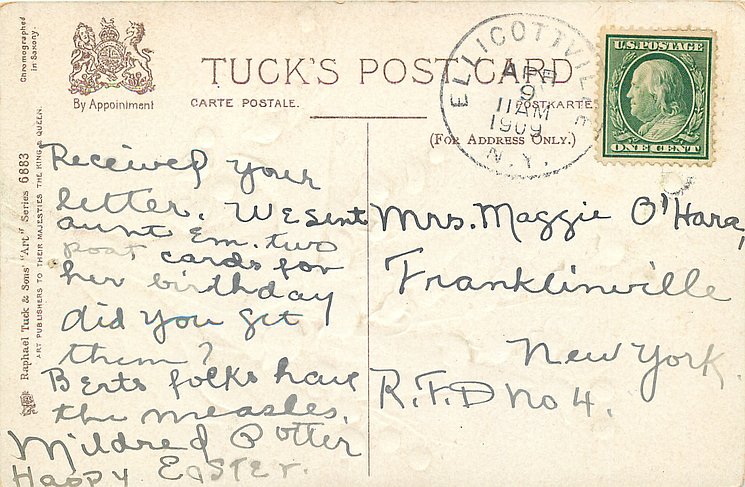 Chromographed
in Saxony.
By Appointment
TUCK'S POST CARD
CARTE POSTALE.
POSTKARTE
(For Address Only.)
ELLICOTTVILLE
APR
9
11 AM
1909
N.Y.
U.S. POSTAGE
ONE CENT
Raphael Tuck & Sons' "Art" Series 6883
ART PUBLISHERS TO THEIR MAJESTIES THE KING & QUEEN.
Received your
letter. We sent
aunt Em. two
post cards for
her birthday
did you get
them?
Berts folks have
the measles.
Mildred Potter
Happy Easter.
Mrs. Maggie O'Hara,
Franklinville
New York.
R.F.D no 4.